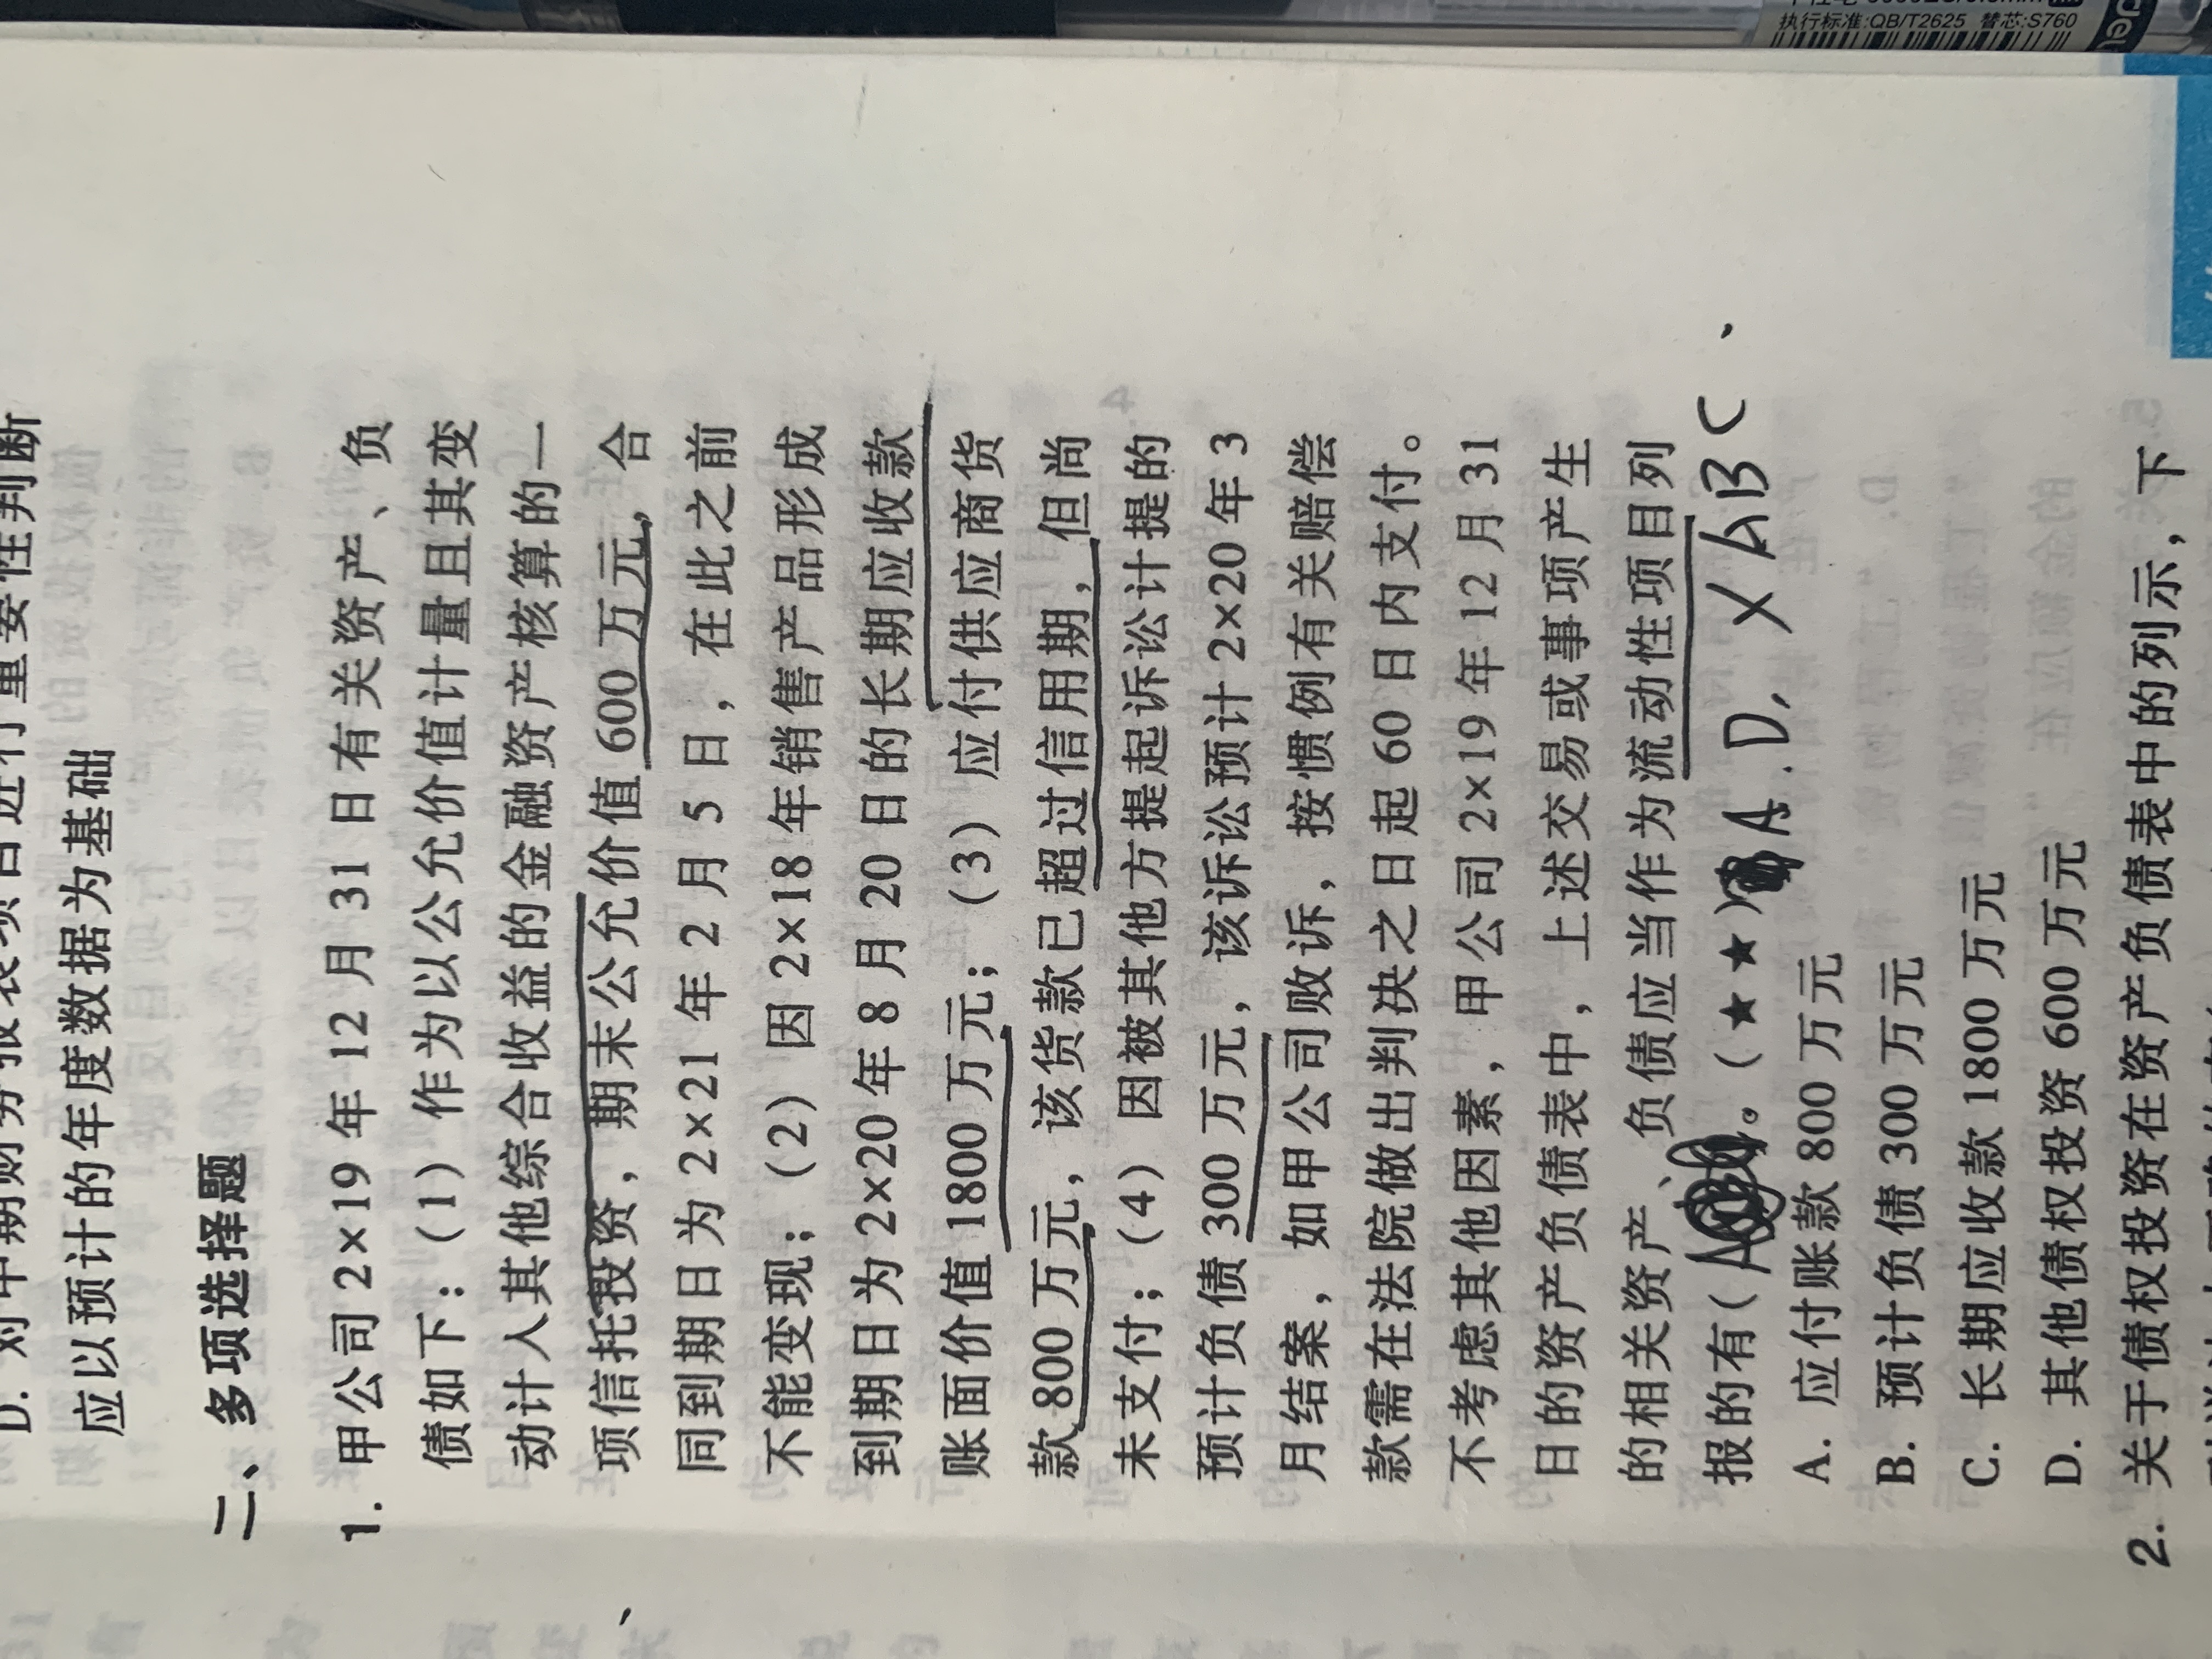 D. 对中期财务报表项目进行重要性判断
应以预计的年度数据为基础
二、多项选择题
1. 甲公司 2×19 年 12 月 31 日有关资产、负
债如下：（1）作为以公允价值计量且其变
动计入其他综合收益的金融资产核算的一
项信托投资，期末公允价值 600 万元，合
同到期日为 2×21 年 2 月 5 日，在此之前
不能变现；（2）因 2×18 年销售产品形成
到期日为 2×20 年 8 月 20 日的长期应收款
账面价值 1800 万元；（3）应付供应商货
款 800 万元，该货款已超过信用期，但尚
未支付；（4）因被其他方提起诉讼计提的
预计负债 300 万元，该诉讼预计 2×20 年 3
月结案，如甲公司败诉，按惯例有关赔偿
款需在法院做出判决之日起 60 日内支付。
不考虑其他因素，甲公司 2×19 年 12 月 31
日的资产负债表中，上述交易或事项产生
的相关资产、负债应当作为流动性项目列
报的有( A 。（★★） A.D, × ABC
A. 应付账款 800 万元
B. 预计负债 300 万元
C. 长期应收款 1800 万元
D. 其他债权投资 600 万元
2. 关于债权投资在资产负债表中的列示，下
执行标准:QB/T2625 替芯:S760